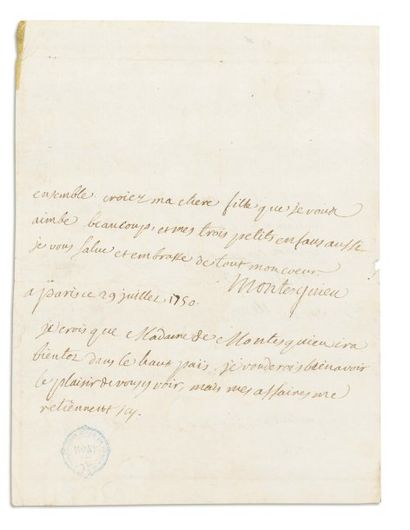 ensemble croiez ma chere fille que je vous
aime beaucoup, et mes trois petits enfans aussi
je vous salue et embrasse de tout mon coeur
Montesquieu
a paris ce 29 juillet 1750.
je crois que Madame de Montesquieu ira
bientot dans le haut pais. je voudrois bien avoir
le plaisir de vous y voir, mais mes affaires me
retiennent icy.